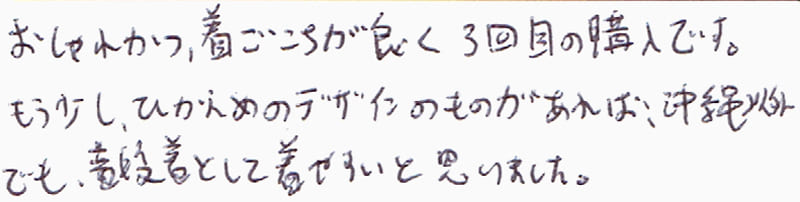 おしゃれかつ、着ごこちが良く3回目の購入です。
もう少し、ひかえめのデザインのものがあれば、沖縄以外
でも、普段着として着やすいと思いました。